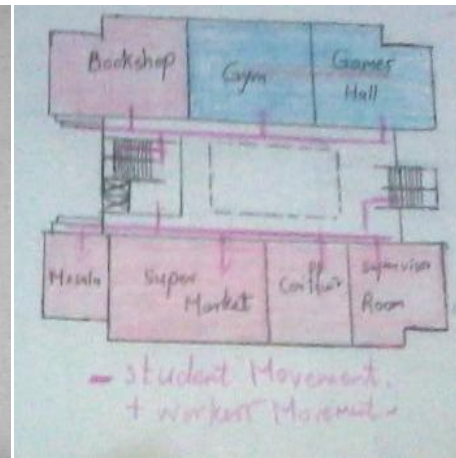 Bookshop
Gym
Games
Hall
Masala
Super
Market
Coiffur
Supervisor
Room
- Student Movement.
+ Worker Movement.